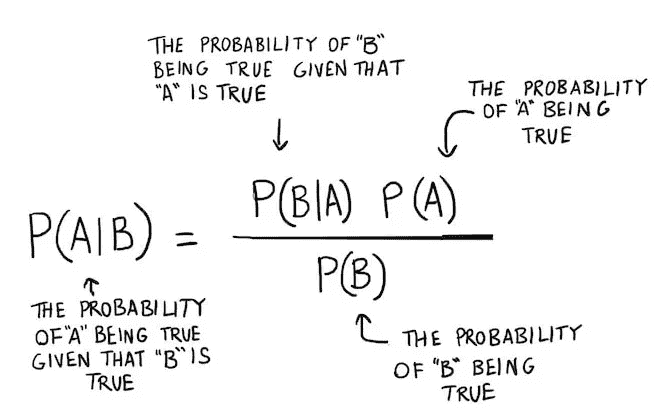 THE PROBABILITY OF "B"
BEING TRUE GIVEN THAT
"A" IS TRUE
THE PROBABILITY
OF "A" BEING
TRUE
P(A|B) = P(B|A) P(A)
P(B)
THE PROBABILITY
OF "A" BEING TRUE
GIVEN THAT "B" IS
TRUE
THE PROBABILITY
OF "B" BEING
TRUE